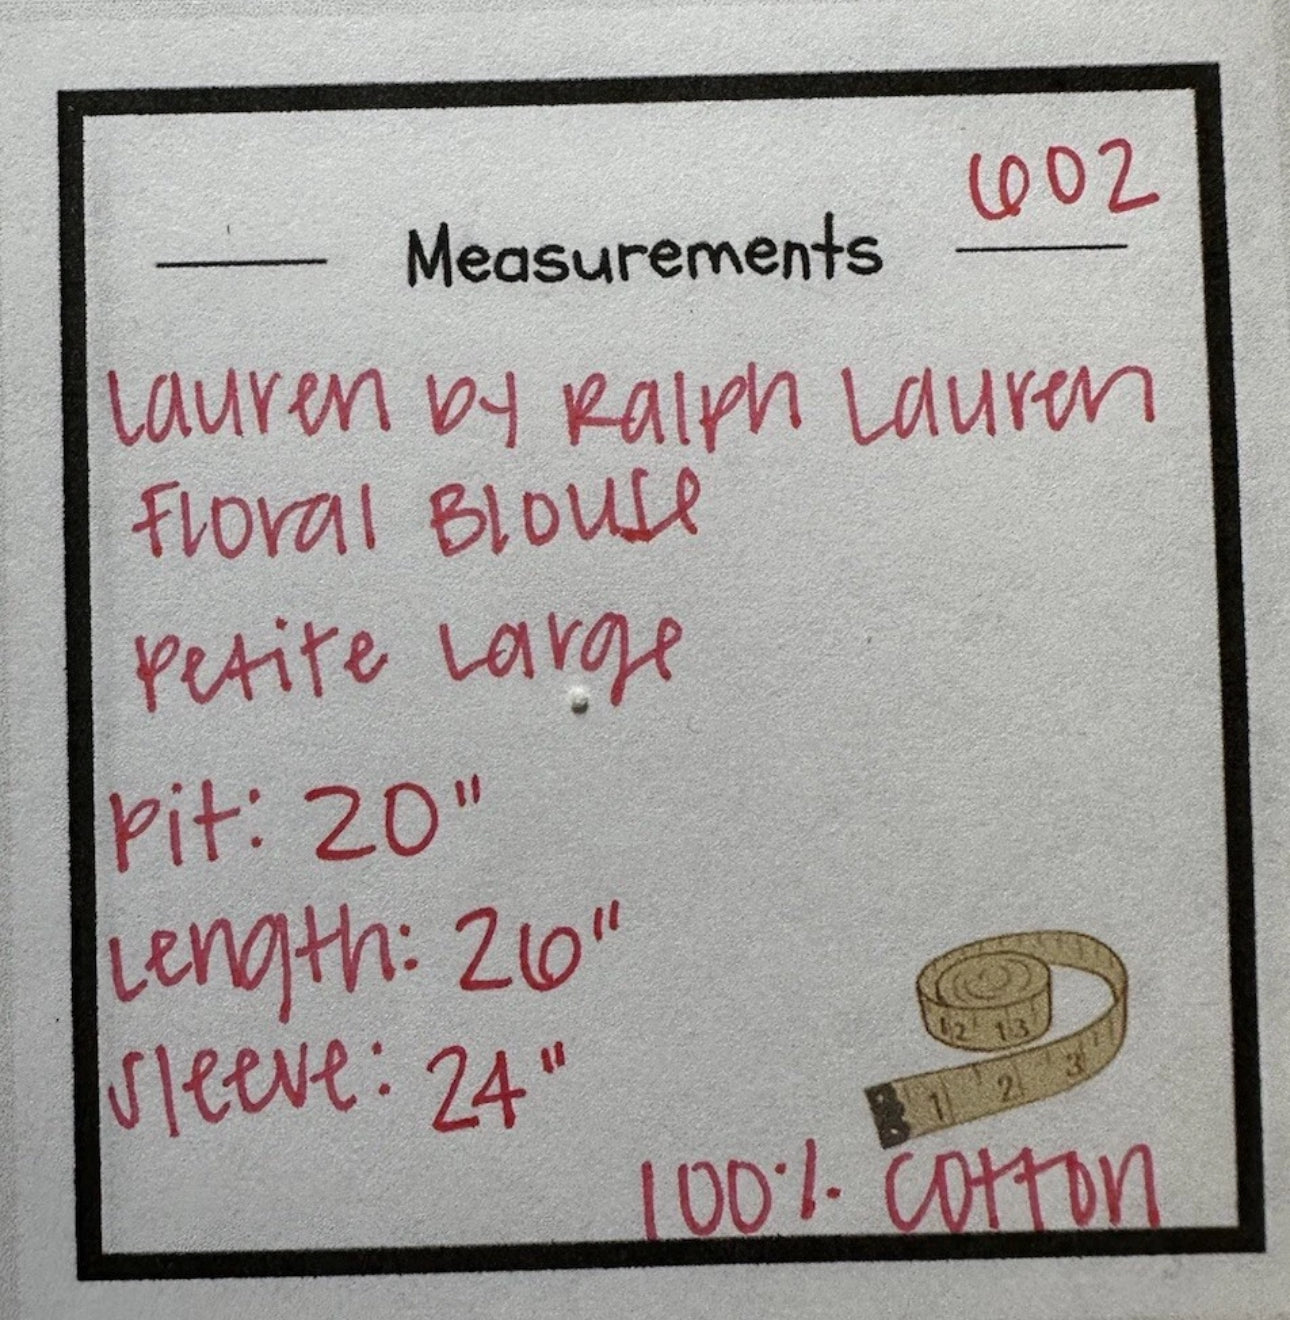 602
Measurements
Lauren by Ralph Lauren
Floral Blouse
Petite Large
Pit: 20"
Length: 26"
Sleeve: 24"
12 13
1 2 3
100% cotton